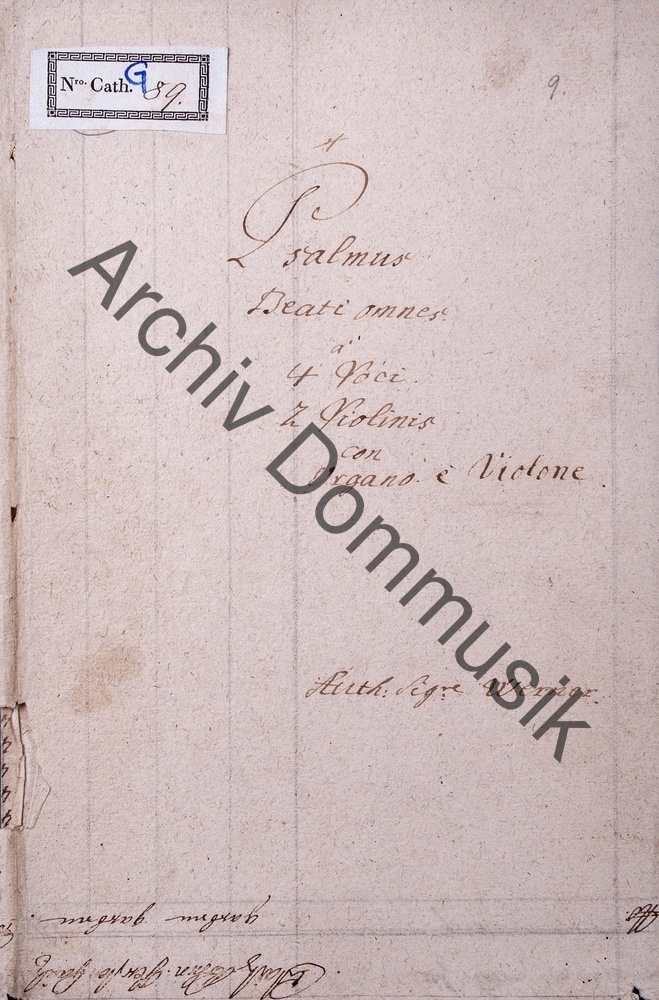 Nro. Cath. G 89.
9.
Psalmus
Beati omnes.
a
4 Voci.
2 Violinis
con
Organo. è Violone.
Auth: Sigre Werner.
Archiv Dommusik